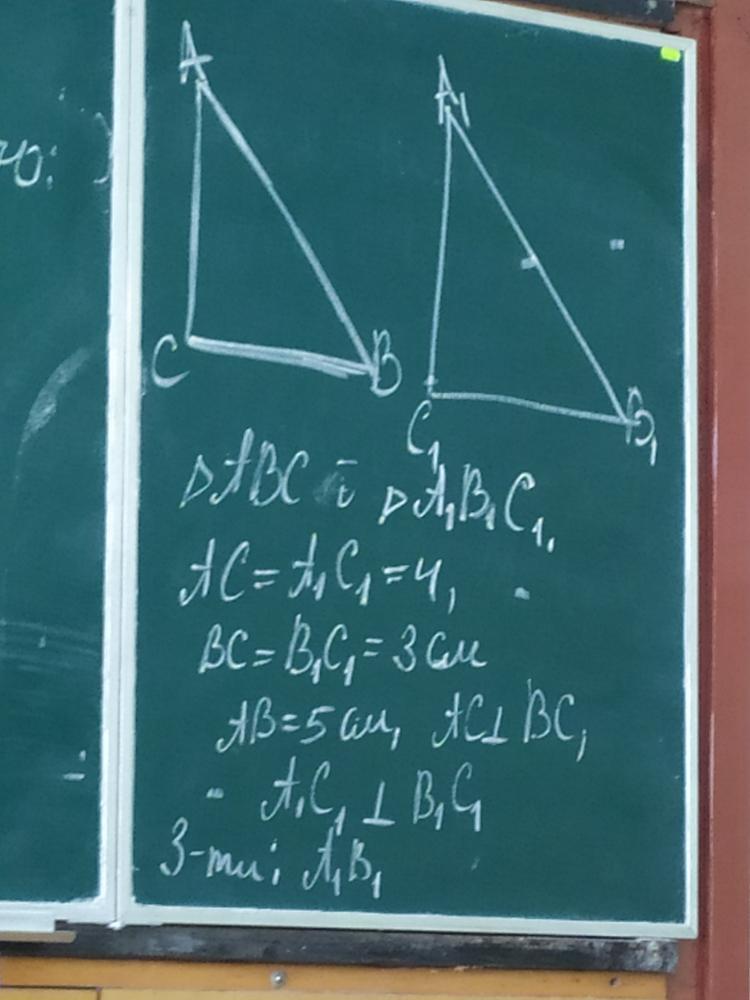 ю:
A
A₁
C
B
C₁
B₁
△ABC і △A₁B₁C₁.
AC = A₁C₁ = 4,
BC = B₁C₁ = 3 см
AB = 5 см, AC ⊥ BC,
A₁C₁ ⊥ B₁C₁
З-ти: A₁B₁